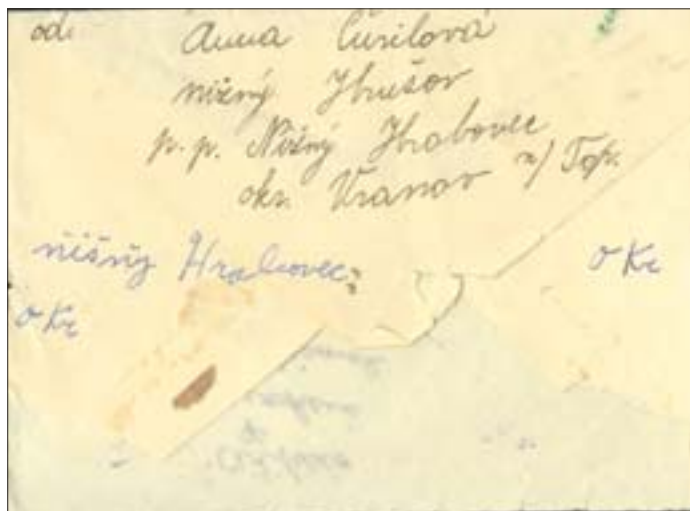 od. Anna Čurilová
nižný Hrušov
p. p. Nižný Hrabovec
okr. Vranov n/ Top.
nišny Hrabovec
o Kr
o Kr